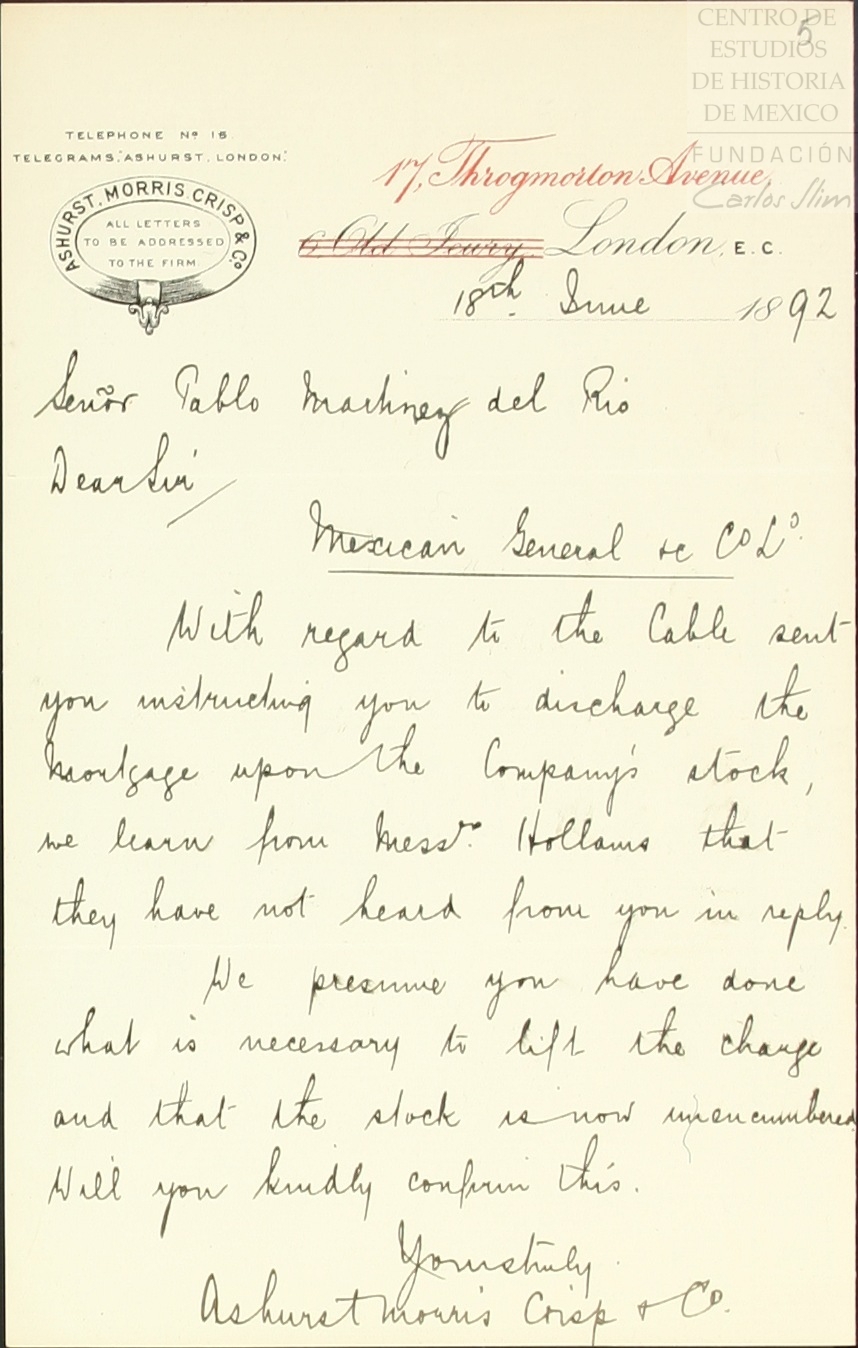 CENTRO DE
ESTUDIOS
DE HISTORIA
DE MEXICO
FUNDACIÓN
Carlos Slim
5
TELEPHONE Nº 15.
TELEGRAMS, "ASHURST, LONDON."
ASHURST, MORRIS, CRISP & Cº
ALL LETTERS
TO BE ADDRESSED
TO THE FIRM
17, Throgmorton Avenue,
6 Old Jewry, London, E.C.
18th June 1892
Señor Pablo Martinez del Rio
Dear Sir
Mexican General &c Cº Lº.
With regard to the Cable sent
you instructing you to discharge the
Mortgage upon the Company's stock,
we learn from Messrs. Hollams that
they have not heard from you in reply.
We presume you have done
what is necessary to lift the charge
and that the stock is now unencumbered
Will you kindly confirm this.
Yours truly
Ashurst Morris Crisp & Co.